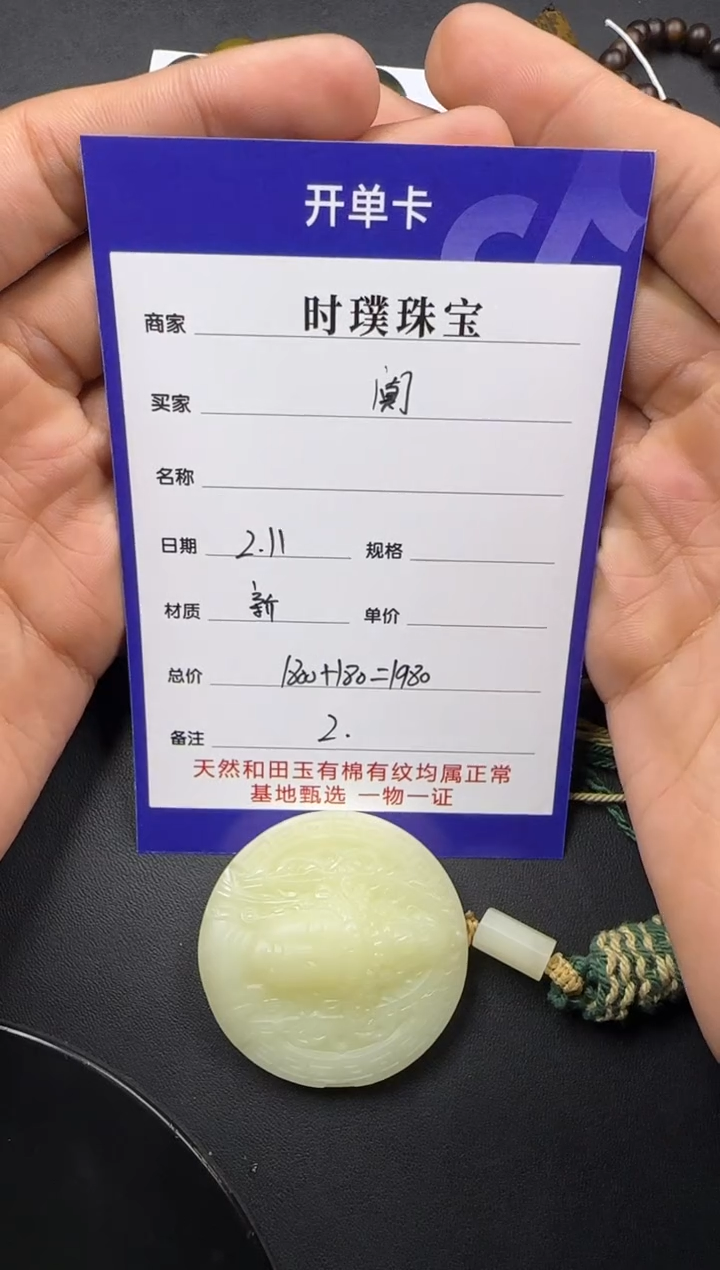 开单卡
商家 时璞珠宝
买家
名称
日期 2.11 规格
材质 新 单价
总价 1800+180=1980
备注 2.
天然和田玉有棉有纹均属正常
基地甄选 一物一证